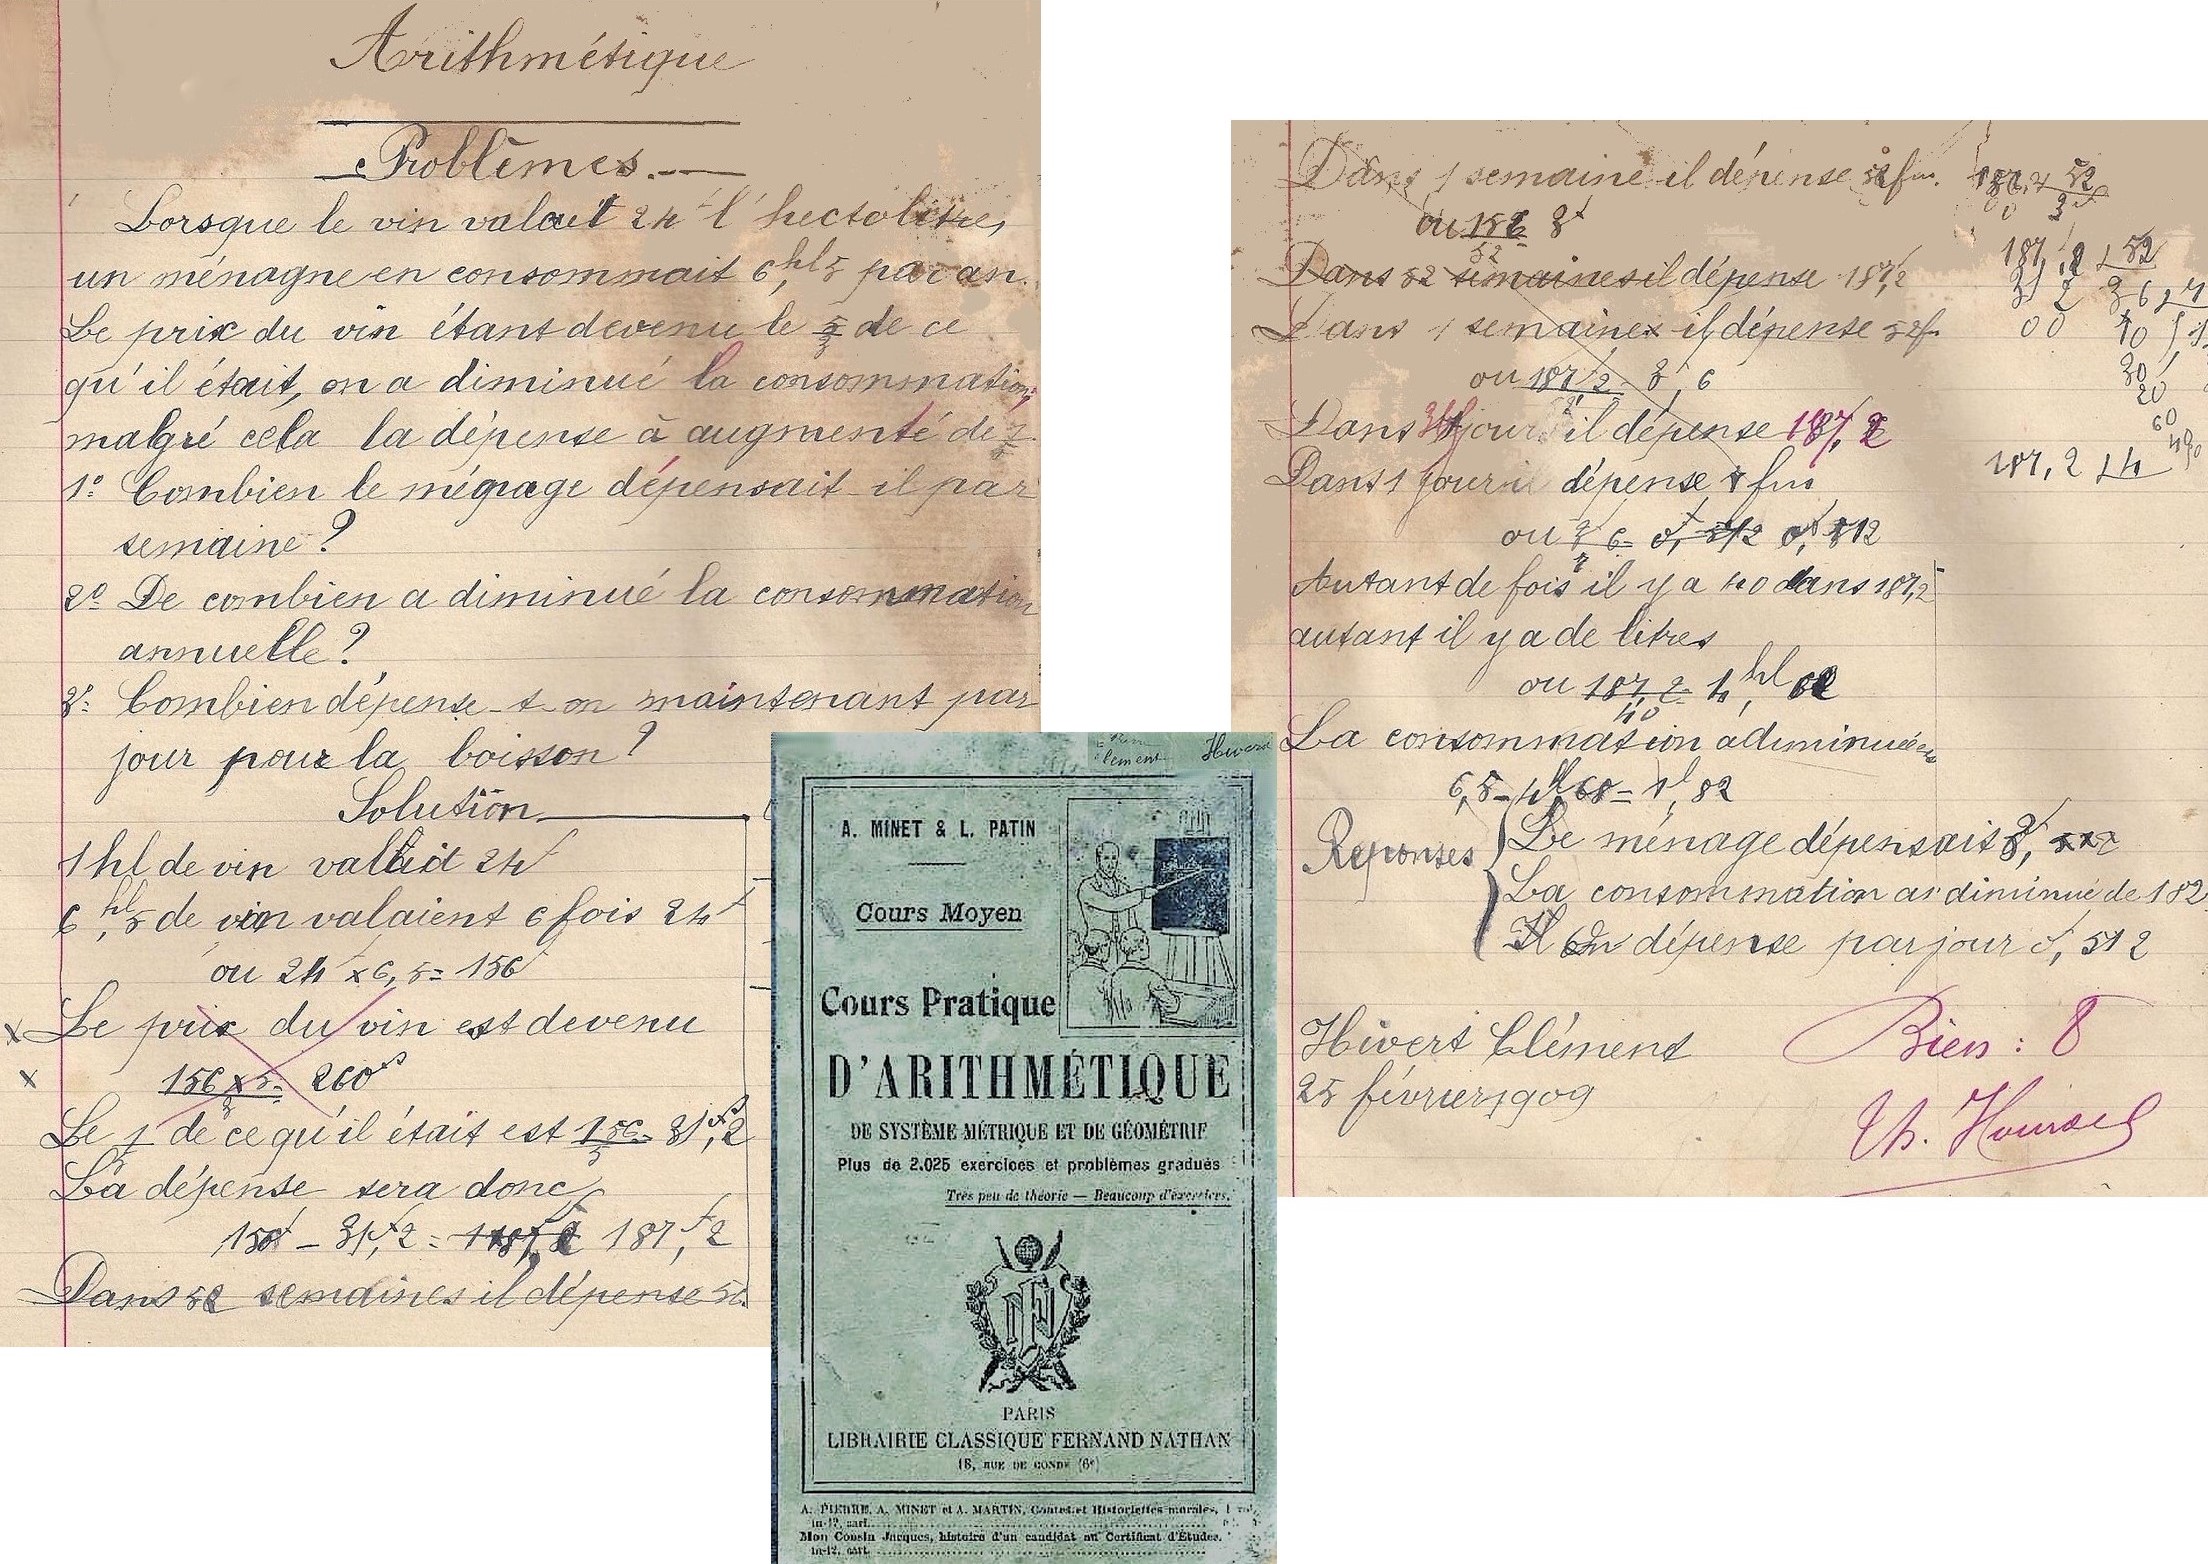 Arithmétique
Problèmes.
Lorsque le vin valait 24 f l'hectolitre,
un ménagne en consommait 6,hl5 par an.
Le prix du vin étant devenu le 5/3 de ce
qu'il était, on a diminué la consommation,
malgré cela la dépense à augmenté de
1° Combien le ménage dépensait-il par
semaine?
2° De combien a diminué la consommation
annuelle?
3° Combien dépense-t-on maintenant par
jour pour la boisson?
Solution
1 hl de vin valait 24 f
6,hl5 de vin valaient 6 fois 24 f
ou 24 f x 6,5 = 156 f
x Le prix du vin est devenu
x 156 x 5 = 260 f
3
Le 1/5 de ce qu'il était est 156 = 31 f,2
5
La dépense sera donc
156 f - 31 f,2 = 187 f,2
Dans 52 semaines il dépense
Dans 1 semaine il dépense 52 f m.
ou 156 3 f
52
Dans 52 semaines il dépense 187,2
Dans 1 semaines il dépense 52 f
ou 187,2 = 3,6
Dans jour il dépense 187,2
Dans 1 jour il dépense 7 f m
ou 3,6 = 0,512 0 f,512
7
Autant de fois il y a 40 dans 187,2
autant il y a de litres
ou 187,2 = 4,hl 68
40
La consommation a diminuée
6,5 - 4,hl 68 = 1 hl,82
Reponses
Le ménage dépensait 3 f,
La consommation a diminué de 182
Il On dépense par jour 0 f, 512
Hivert Clément
25 février 1909
Bien : 8
187,2 52
31 2 3 6
00
187,2 4
Clément Hivert
A. MINET & L. PATIN
Cours Moyen
Cours Pratique
D'ARITHMÉTIQUE
DE SYSTÈME MÉTRIQUE ET DE GÉOMÉTRIE
Plus de 2.025 exercices et problèmes gradués
Très peu de théorie — Beaucoup d'exercices.
PARIS
LIBRAIRIE CLASSIQUE FERNAND NATHAN
18, RUE DE CONDÉ (6e)
A. PIERRE, A. MINET et A. MARTIN, Contes et Historiettes morales, 1 vol.
in-12, cart.
Mon Cousin Jacques, histoire d'un candidat au Certificat d'Études.
in-12, cart.